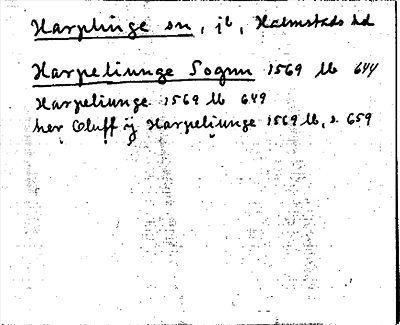 Harplinge sn, jb, Halmstads hd
Harpeliunge Sognn 1569 lb 644
Harpeliunge 1569 lb 649
her Oluff ÿ Harpeliunge 1569 lb, s. 659